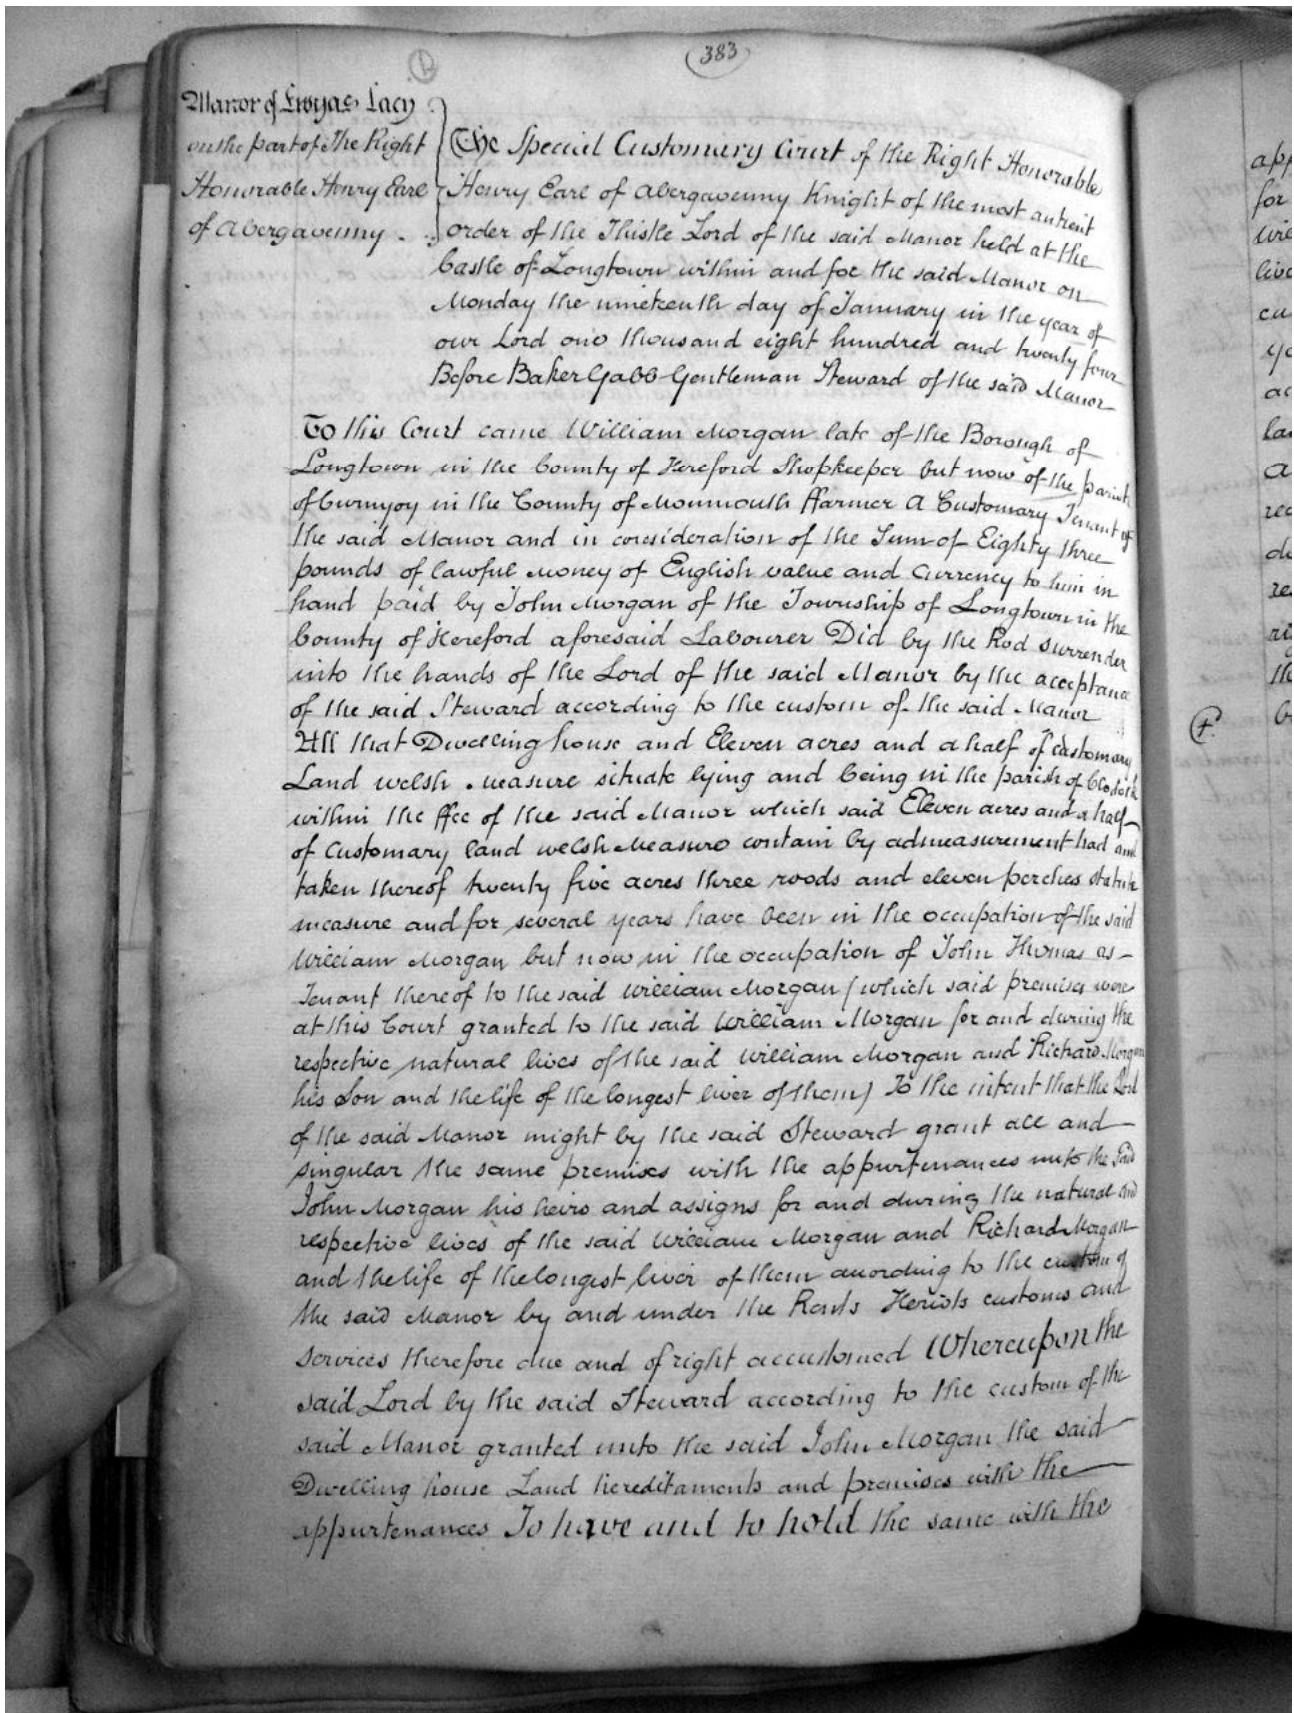 383
Manor of Ewyas Lacy
on the part of The Right
Honorable Henry Earl
of Abergavenny
The Special Customary Court of the Right Honorable
Henry Earl of Abergavenny Knight of the most antient
order of the Thistle Lord of the said Manor held at the
Castle of Longtown within and for the said Manor on
Monday the nineteenth day of January in the year of
our Lord one thousand eight hundred and twenty four
Before Baker Gabb Gentleman Steward of the said Manor
To this Court came William Morgan late of the Borough of
Longtown in the County of Hereford Shopkeeper but now of the parish
of Cwmyoy in the County of Monmouth ffarmer A Customary Tenant of
the said Manor and in consideration of the Sum of Eighty three
pounds of lawful Money of English value and Currency to him in
hand paid by John Morgan of the Township of Longtown in the
County of Hereford aforesaid Labourer Did by the Rod surrender
into the hands of the Lord of the said Manor by the acceptance
of the said Steward according to the custom of the said Manor
All that Dwelling house and Eleven acres and a half of customary
Land welsh Measure situate lying and being in the parish of Clodock
within the ffee of the said Manor which said Eleven acres and a half
of customary land welsh Measure contain by admeasurement had and
taken thereof twenty five acres three roods and eleven perches statute
measure and for several years have been in the occupation of the said
William Morgan but now in the occupation of John Thomas as
Tenant thereof to the said William Morgan (which said premises were
at this Court granted to the said William Morgan for and during the
respective natural lives of the said William Morgan and Richard Morgan
his Son and the life of the longest liver of them) To the intent that the Lord
of the said Manor might by the said Steward grant all and
singular the same premises with the appurtenances unto the said
John Morgan his heirs and assigns for and during the natural and
respective lives of the said William Morgan and Richard Morgan
and the life of the longest liver of them according to the custom of
the said Manor by and under the Rents Heriots customs and
services therefore due and of right accustomed Whereupon the
said Lord by the said Steward according to the custom of the
said Manor granted unto the said John Morgan the said
Dwelling house Land hereditaments and premises with the
appurtenances To have and to hold the same with the